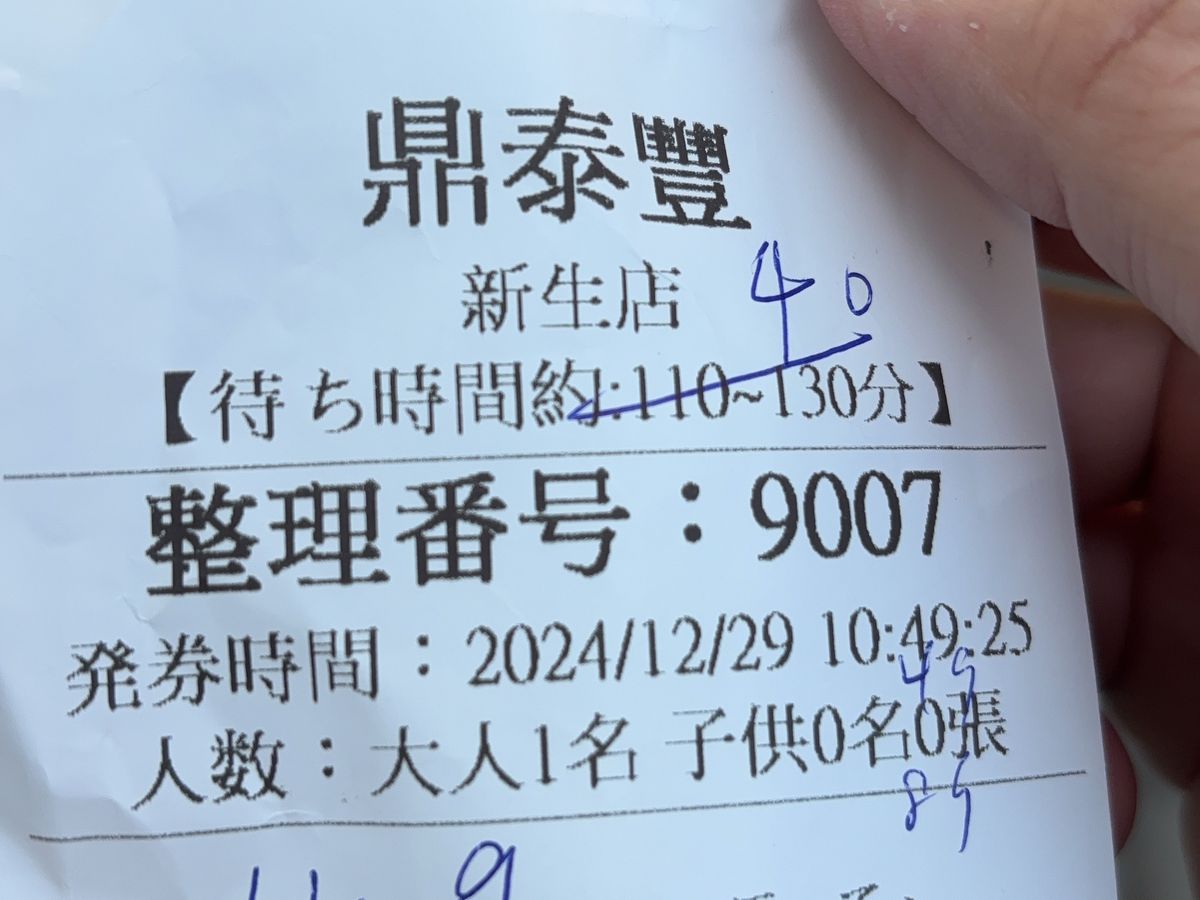 鼎泰豐
新生店
40
【待ち時間約:110~130分】
整理番号：9007
発券時間：2024/12/29 10:49:25
人数：大人1名 子供0名0張
9